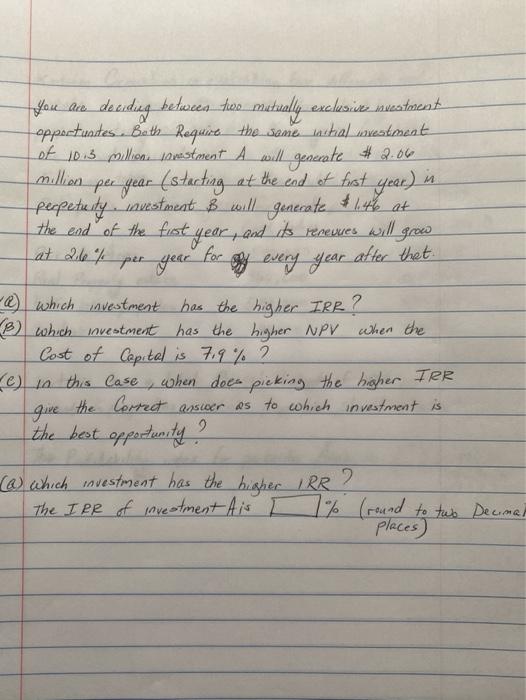 You are deciding between two mutually exclusive investment
opportunites. Both Require the same initial investment
of 10.3 million. investment A will generate $ 2.06
million per year (starting at the end of first year) in
perpetuity. investment B will generate $1.46 at
the end of the first year, and its renevues will grow
at 2.6% per year for every year after that.
(a) which investment has the higher IRR?
(B) which investment has the higher NPV when the
Cost of Capital is 7.9%?
(c) in this Case, when does picking the higher IRR
give the Correct answer as to which investment is
the best opportunity?
(a) which investment has the higher IRR?
The IRR of investment A is % (round to two Decimal
places)